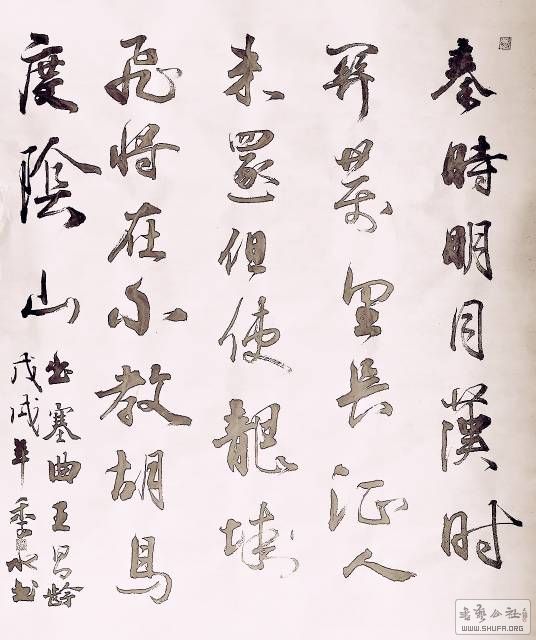 秦時明月漢时
関萬里長征人
未還但使龍城
飛将在不教胡馬
度陰山
出塞曲王昌龄
戊戌年季水书
書藝公社
WWW.SHUFA.ORG